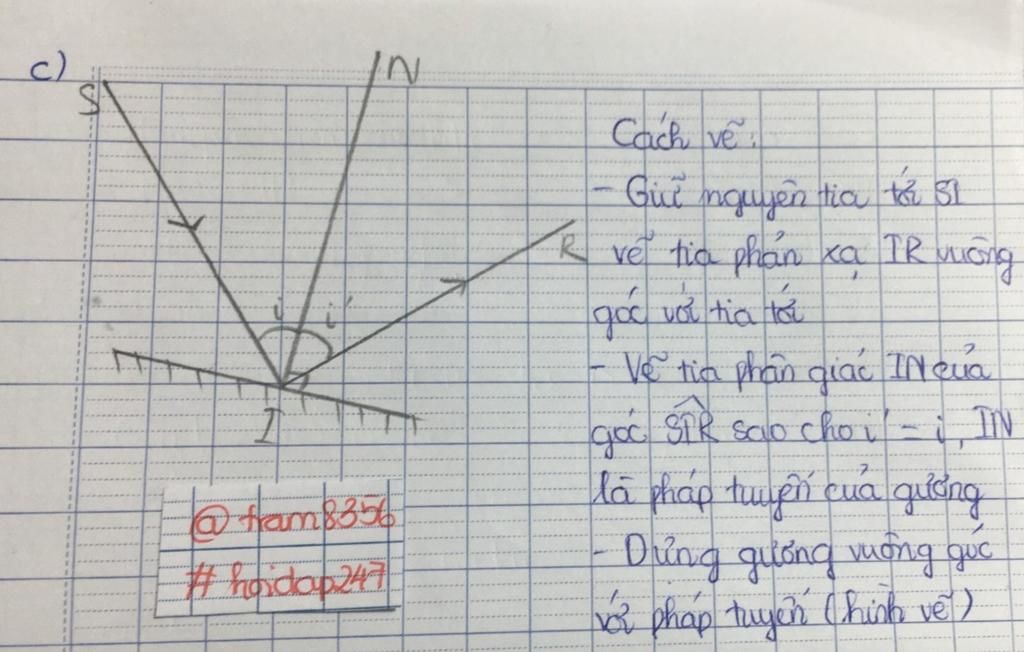 c)
S
N
R
i i'
I
Cách vẽ:
- Giữ nguyên tia tới SI
vẽ tia phản xạ IR vuông
góc với tia tới
- Vẽ tia phân giác IN của
góc SIR sao cho i' = i, IN
là pháp tuyến của gương
- Dựng gương vuông góc
với pháp tuyến (hình vẽ)
@tram8356
#hoidap247